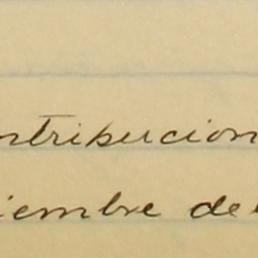 ntribucion
iembre de